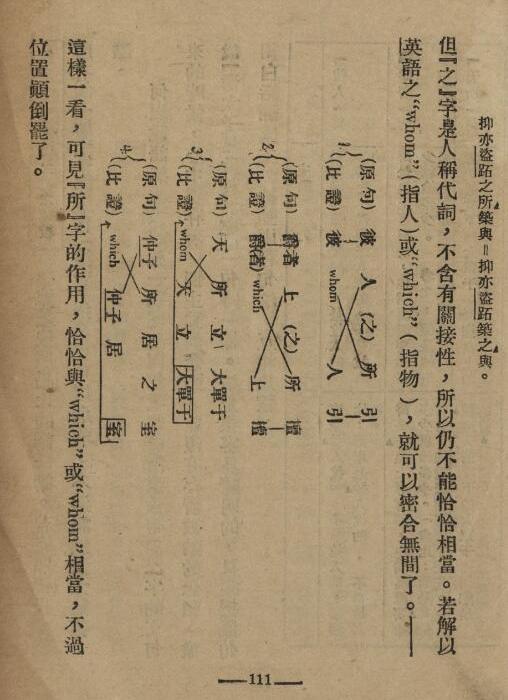 抑亦盜跖之所築與=抑亦盜跖築之與。
但『之』字是人稱代詞,不含有關接性,所以仍不能恰恰相當。若解以
英語之“whom”(指人)或“which”(指物),就可以密合無間了。——
1. (原句) 彼 人 (之) 所 引
(比證) 彼 whom 人 引
2. (原句) 爵者 上 (之) 所 擅
(比證) 爵(者) which 上 擅
3. (原句) 天 所 立 大單于
(比證) whom 天 立 大單于
4. (原句) 仲子 所 居 之 室
(比證) which 仲子 居 室
這樣一看,可見『所』字的作用,恰恰與“which”或“whom”相當,不過
位置顚倒罷了。
—111—